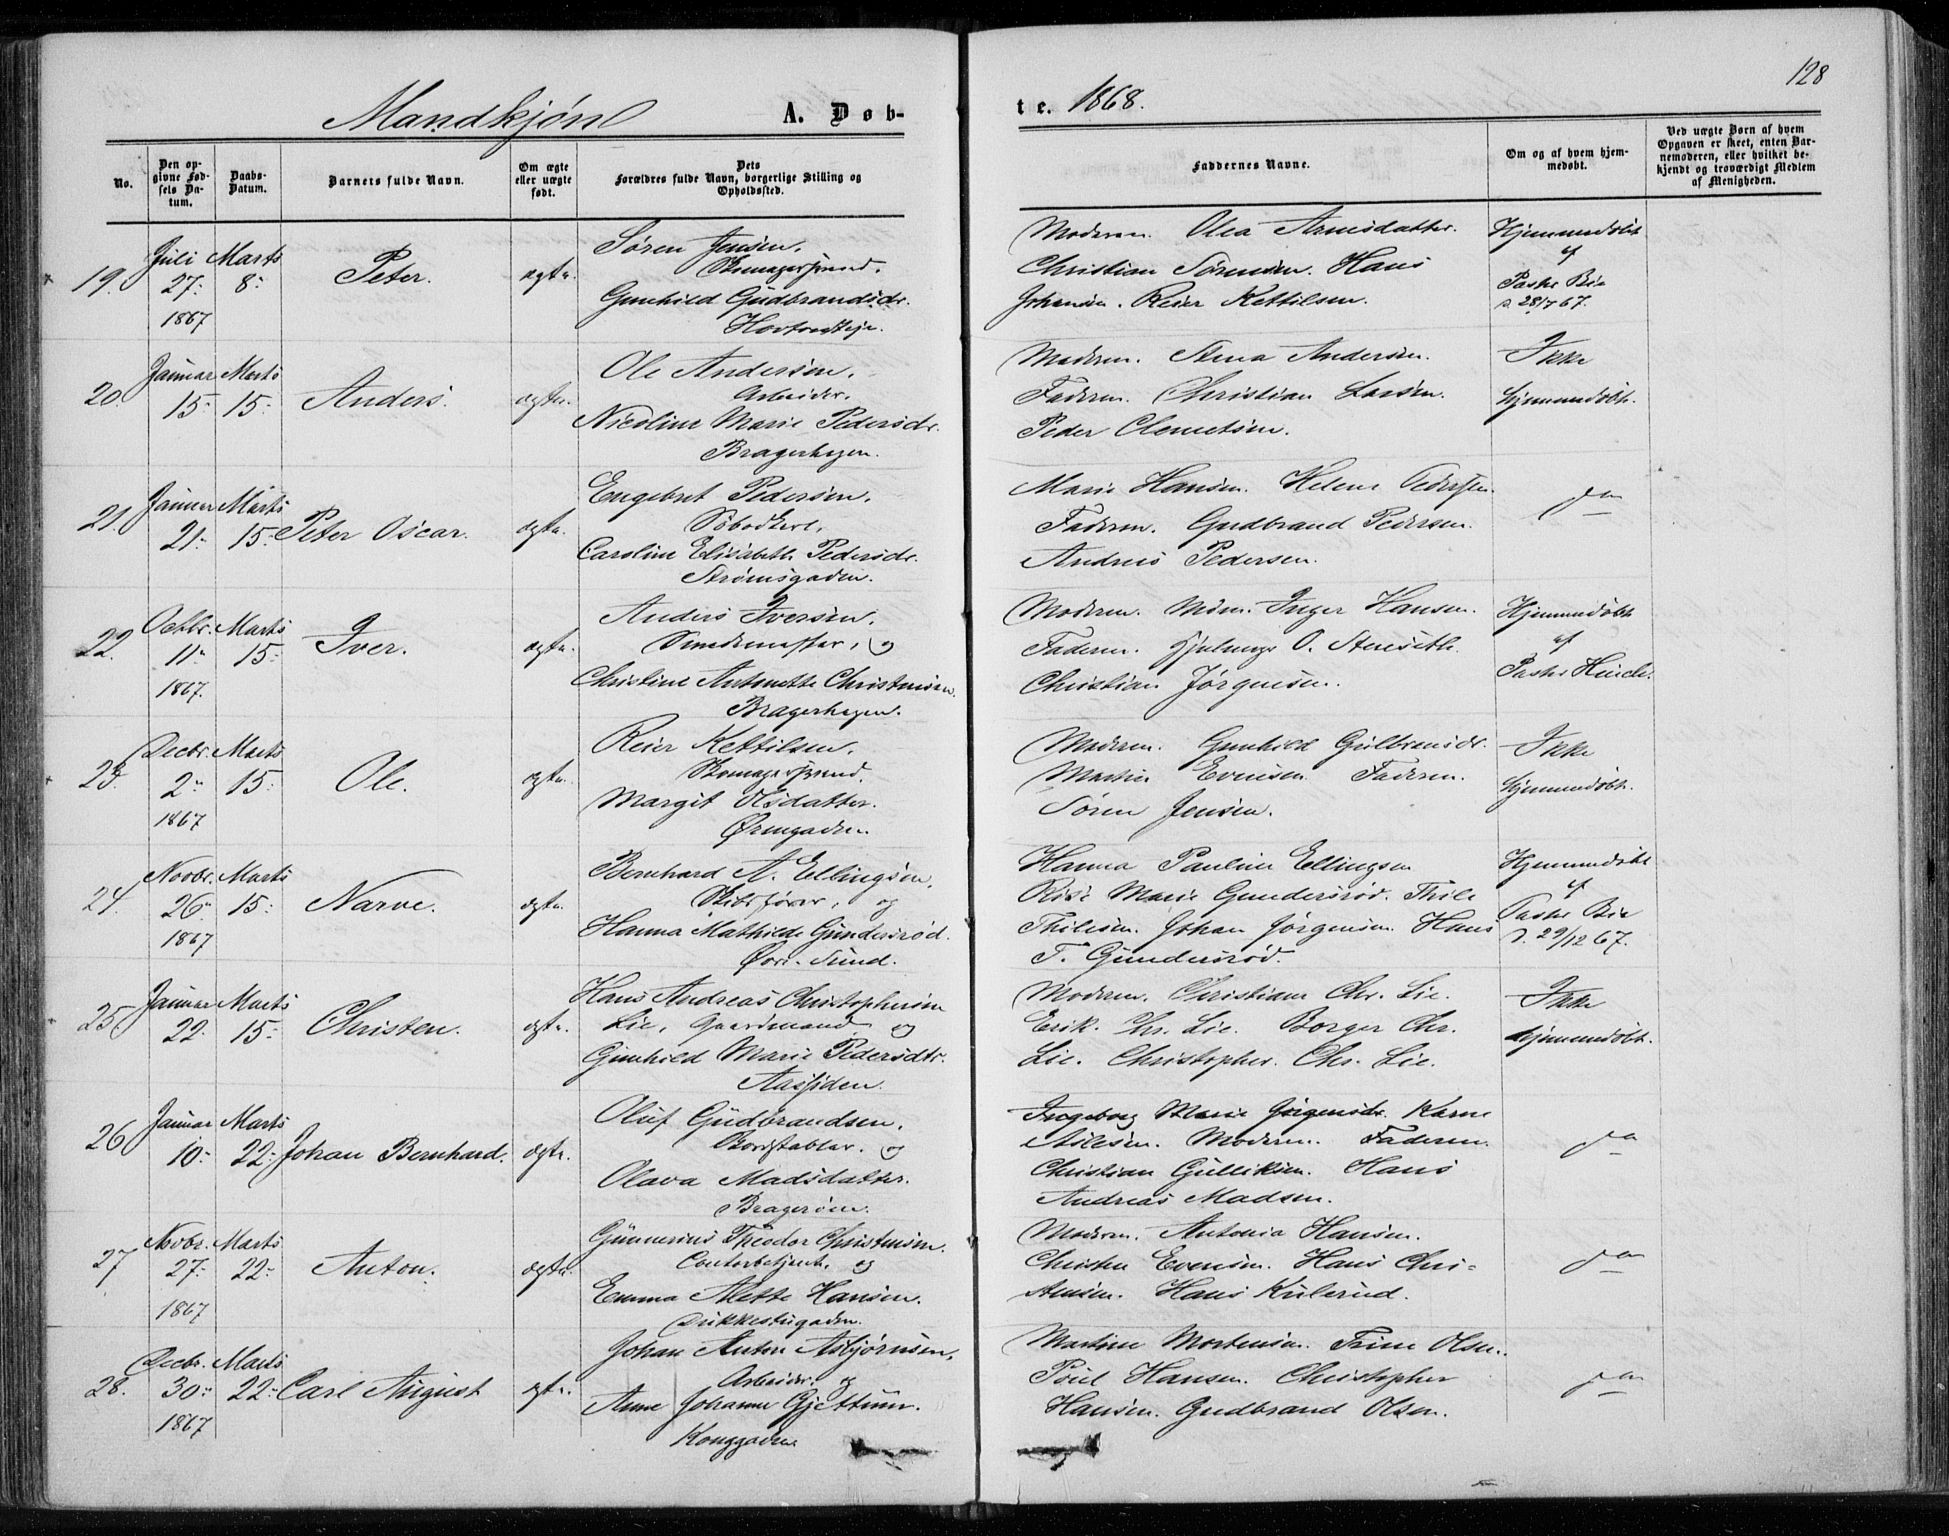 128
Mandkjøn A. Døb-
te. 1868.
No.
Den op-
givne Fød-
sels Da-
tum.
Daabs-
Datum.
Barnets fulde Navn.
Om ægte
eller uægte
født.
Dets
Forældres fulde Navn, borgerlige Stilling og
Opholdssted.
Faddernes Navne.
Om og af hvem hjem-
medøbt.
Ved uægte Børn af hvem
Opgaven er skeet, enten Bar-
nemoderen, eller hvilket be-
kjendt og troværdigt Medlem
af Menigheden.
19.
Juli
27
1867
Marts
8
Peter.
ægte.
Søren Jensen.
Skomagersvend.
Gunhild Gudbrandsdr.
Moderen. Olea Arnesdatter.
Christian Sørensen. Hans
Johansen. Reier Kettilsen.
Hjemmedøbt
af
28/7 67.
20.
Januar
15
Marts
15
Anders.
ægte.
Ole Andersen.
Arbeider.
Nicoline Marie Pedersdr.
Bragerhagen.
Moderen. Stena Andersen.
Faderen. Christian Larsen.
Peder Clemetsen.
Ikke
hjemmedøbt.
21.
Januar
21
Marts
15
Peter Oscar.
ægte.
Engebret Pedersen.
Caroline Elisabeth Pedersdr.
Strømsgaden.
Marie Hansen. Helene Pedersen.
Faderen. Gudbrand Pedersen.
Andreas Pedersen.
do
22.
Octbr.
11
1867.
Marts
15
Iver.
ægte.
Anders Iversen.
Smedemester, og
Christine Antonette Christensen.
Bragerhagen.
Moderen. Mdm. Inger Hansen.
Faderen. O. Stenseth.
Christian Jørgensen.
Hjemmedøbt
af
23.
Decbr.
2
1867
Marts
15
Ole.
ægte.
Reier Kettilsen.
Skomagersvend.
Margit Olsdatter.
Ørengaden.
Moderen. Gunhild Gulbrandsdr.
Martin Evensen. Faderen.
Søren Jensen.
Ikke
hjemmedøbt.
24.
Novbr.
26
1867
Marts
15
Narve.
ægte.
Bernhard A. Ellingsen.
Skibsfører, og
Hanna Mathilde Gundersrød.
Øvre-Sund.
Hanna Pauline Ellingsen
Marie Gundersrød. Thile
Thilesen. Johan Jørgensen. Hans
T. Gundersrød.
Hjemmedøbt
af
29/12 67.
25
Januar
22
Marts
15
Christen.
ægte.
Hans Andreas Christophersen
Lie, Gaardmand og
Gunhild Marie Pedersdtr.
Aassiden.
Moderen. Christiane Chr. Lie.
Erik Chr. Lie. Borger Chr.
Lie. Christopher Chr. Lie.
Ikke
hjemmedøbt.
26
Januar
10
Marts
22
Johan Bernhard.
ægte.
Oluf Gudbrandsen.
Bordstabler. og
Olava Madsdatter.
Bragerøen.
Ingeborg Marie Jørgensdr. Karne
Moderen. Faderen.
Christian Gulliksen. Hans
Andreas Madsen.
do
27
Novbr.
27
1867
Marts
22
Anton.
ægte.
Gunnerius Theodor Christensen.
Contorbetjent. og
Emma Alette Hansen.
Moderen. Antonia Hansen.
Christen Evensen. Hans Chri-
stensen. Hans Kulerud.
do
28.
Decbr.
30
1867
Marts
22
Carl August
ægte.
Johan Anton Asbjørnsen.
Arbeider. og
Anne Johanne Gjettum.
Konggaden
Martine Mortensen. Trine Olsen.
Poul Hansen. Christopher
Hansen. Gudbrand Olsen.
do